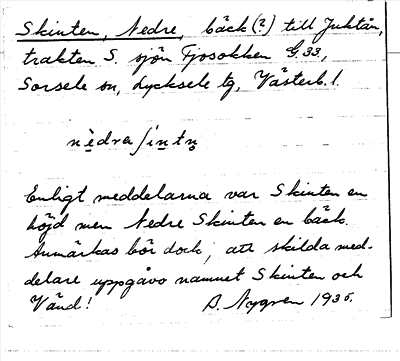 Skinten, Nedre, bäck(?) till Juktån,
trakten S. sjön Fjosokken G.33,
Sorsele sn, Lycksele tg, Västerb. l.
nèdra ʃintn̥
Enligt meddelarna var Skinten en
höjd men Nedre Skinten en bäck.
Anmärkas bör dock, att skilda med-
delare uppgåvo namnet Skinten och
Vänd!
B. Nygren 1935.